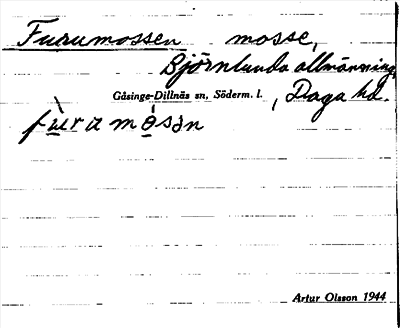 Furumossen mosse,
Björnlunda allmänning,
Gåsinge-Dillnäs sn, Söderm. l. , Daga hd.
fùramósàn
Artur Olsson 1944